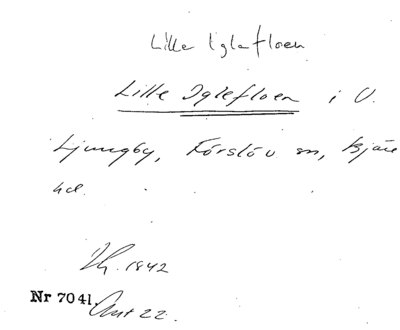 Lille Iglafloen
Lille Iglefloen i V.
Ljungby, Förslöv sn, Bjäre
hd.
1842
Nr 7041. Akt 22.